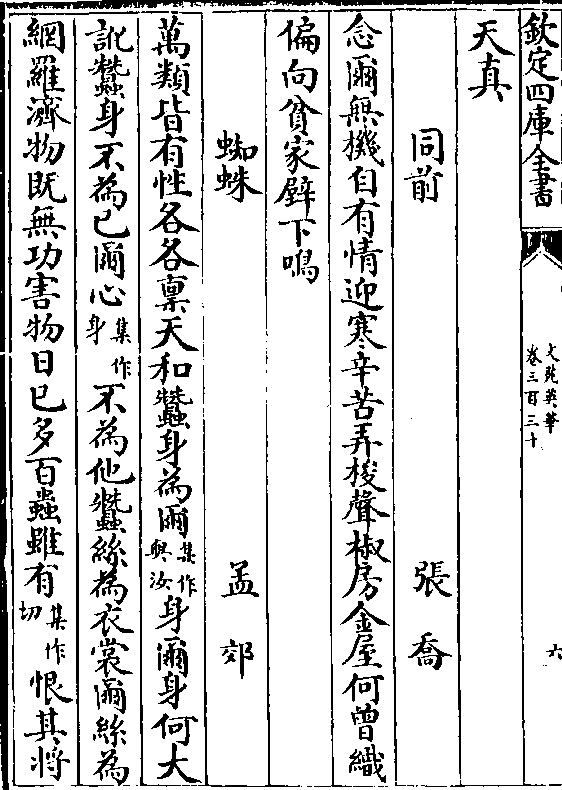 欽定四庫全書 文苑英華 卷三百三十 六
天真
同前 張喬
念爾無機自有情迎寒辛苦弄梭聲椒房金屋何曾織
偏向貧家壁下鳴
蜘蛛 孟郊
萬類皆有性各各稟天和蠶身為爾集作與汝身爾身何大
訛蠶身不為已爾心集作身不為他蠶絲為衣裳爾絲為
網羅濟物既無功害物日已多百蟲雖有集作切恨其將